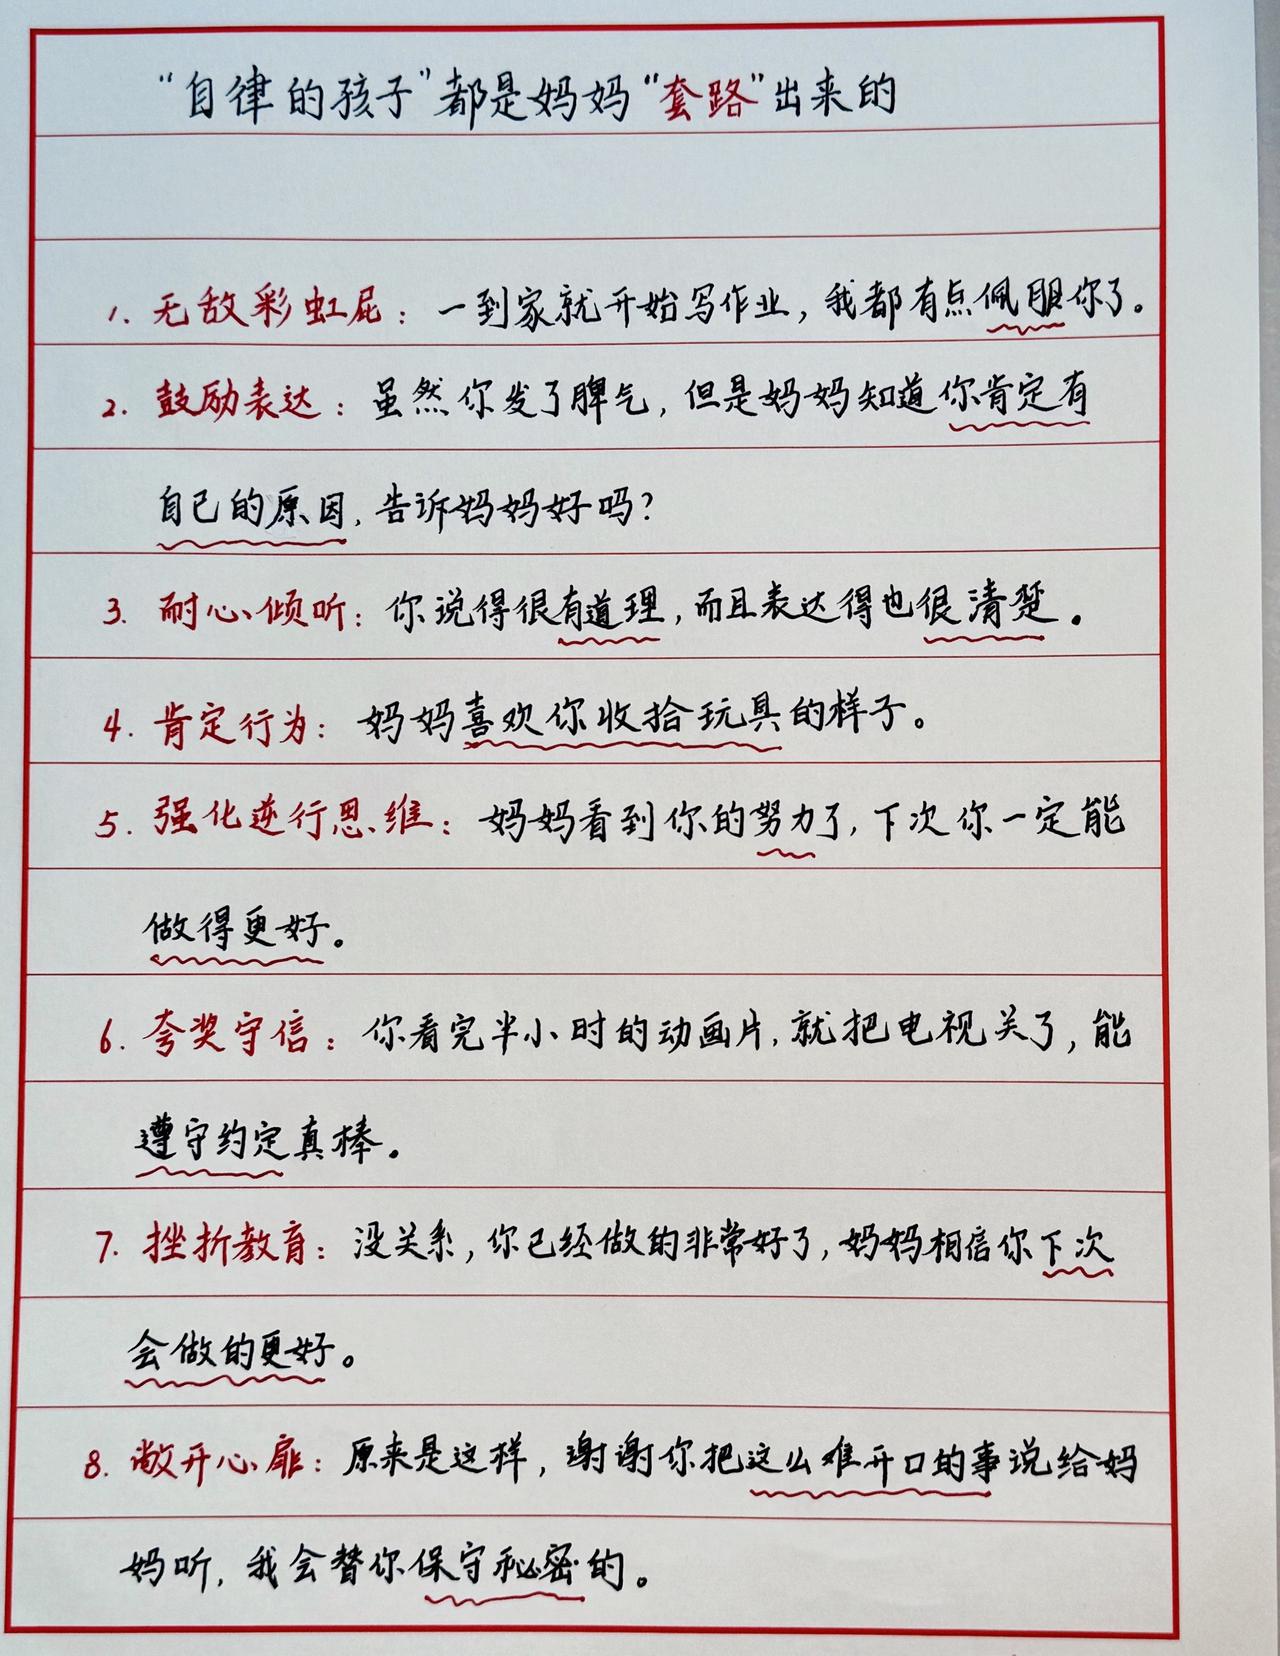 “自律的孩子”都是妈妈“套路”出来的
1. 无敌彩虹屁：一到家就开始写作业，我都有点佩服你了。
2. 鼓励表达：虽然你发了脾气，但是妈妈知道你肯定有
自己的原因，告诉妈妈好吗？
3. 耐心倾听：你说得很有道理，而且表达得也很清楚。
4. 肯定行为：妈妈喜欢你收拾玩具的样子。
5. 强化逆行思维：妈妈看到你的努力了，下次你一定能
做得更好。
6. 夸奖守信：你看完半小时的动画片，就把电视关了，能
遵守约定真棒。
7. 挫折教育：没关系，你已经做的非常好了，妈妈相信你下次
会做的更好。
8. 敞开心扉：原来是这样，谢谢你把这么难开口的事说给妈
妈听，我会替你保守秘密的。